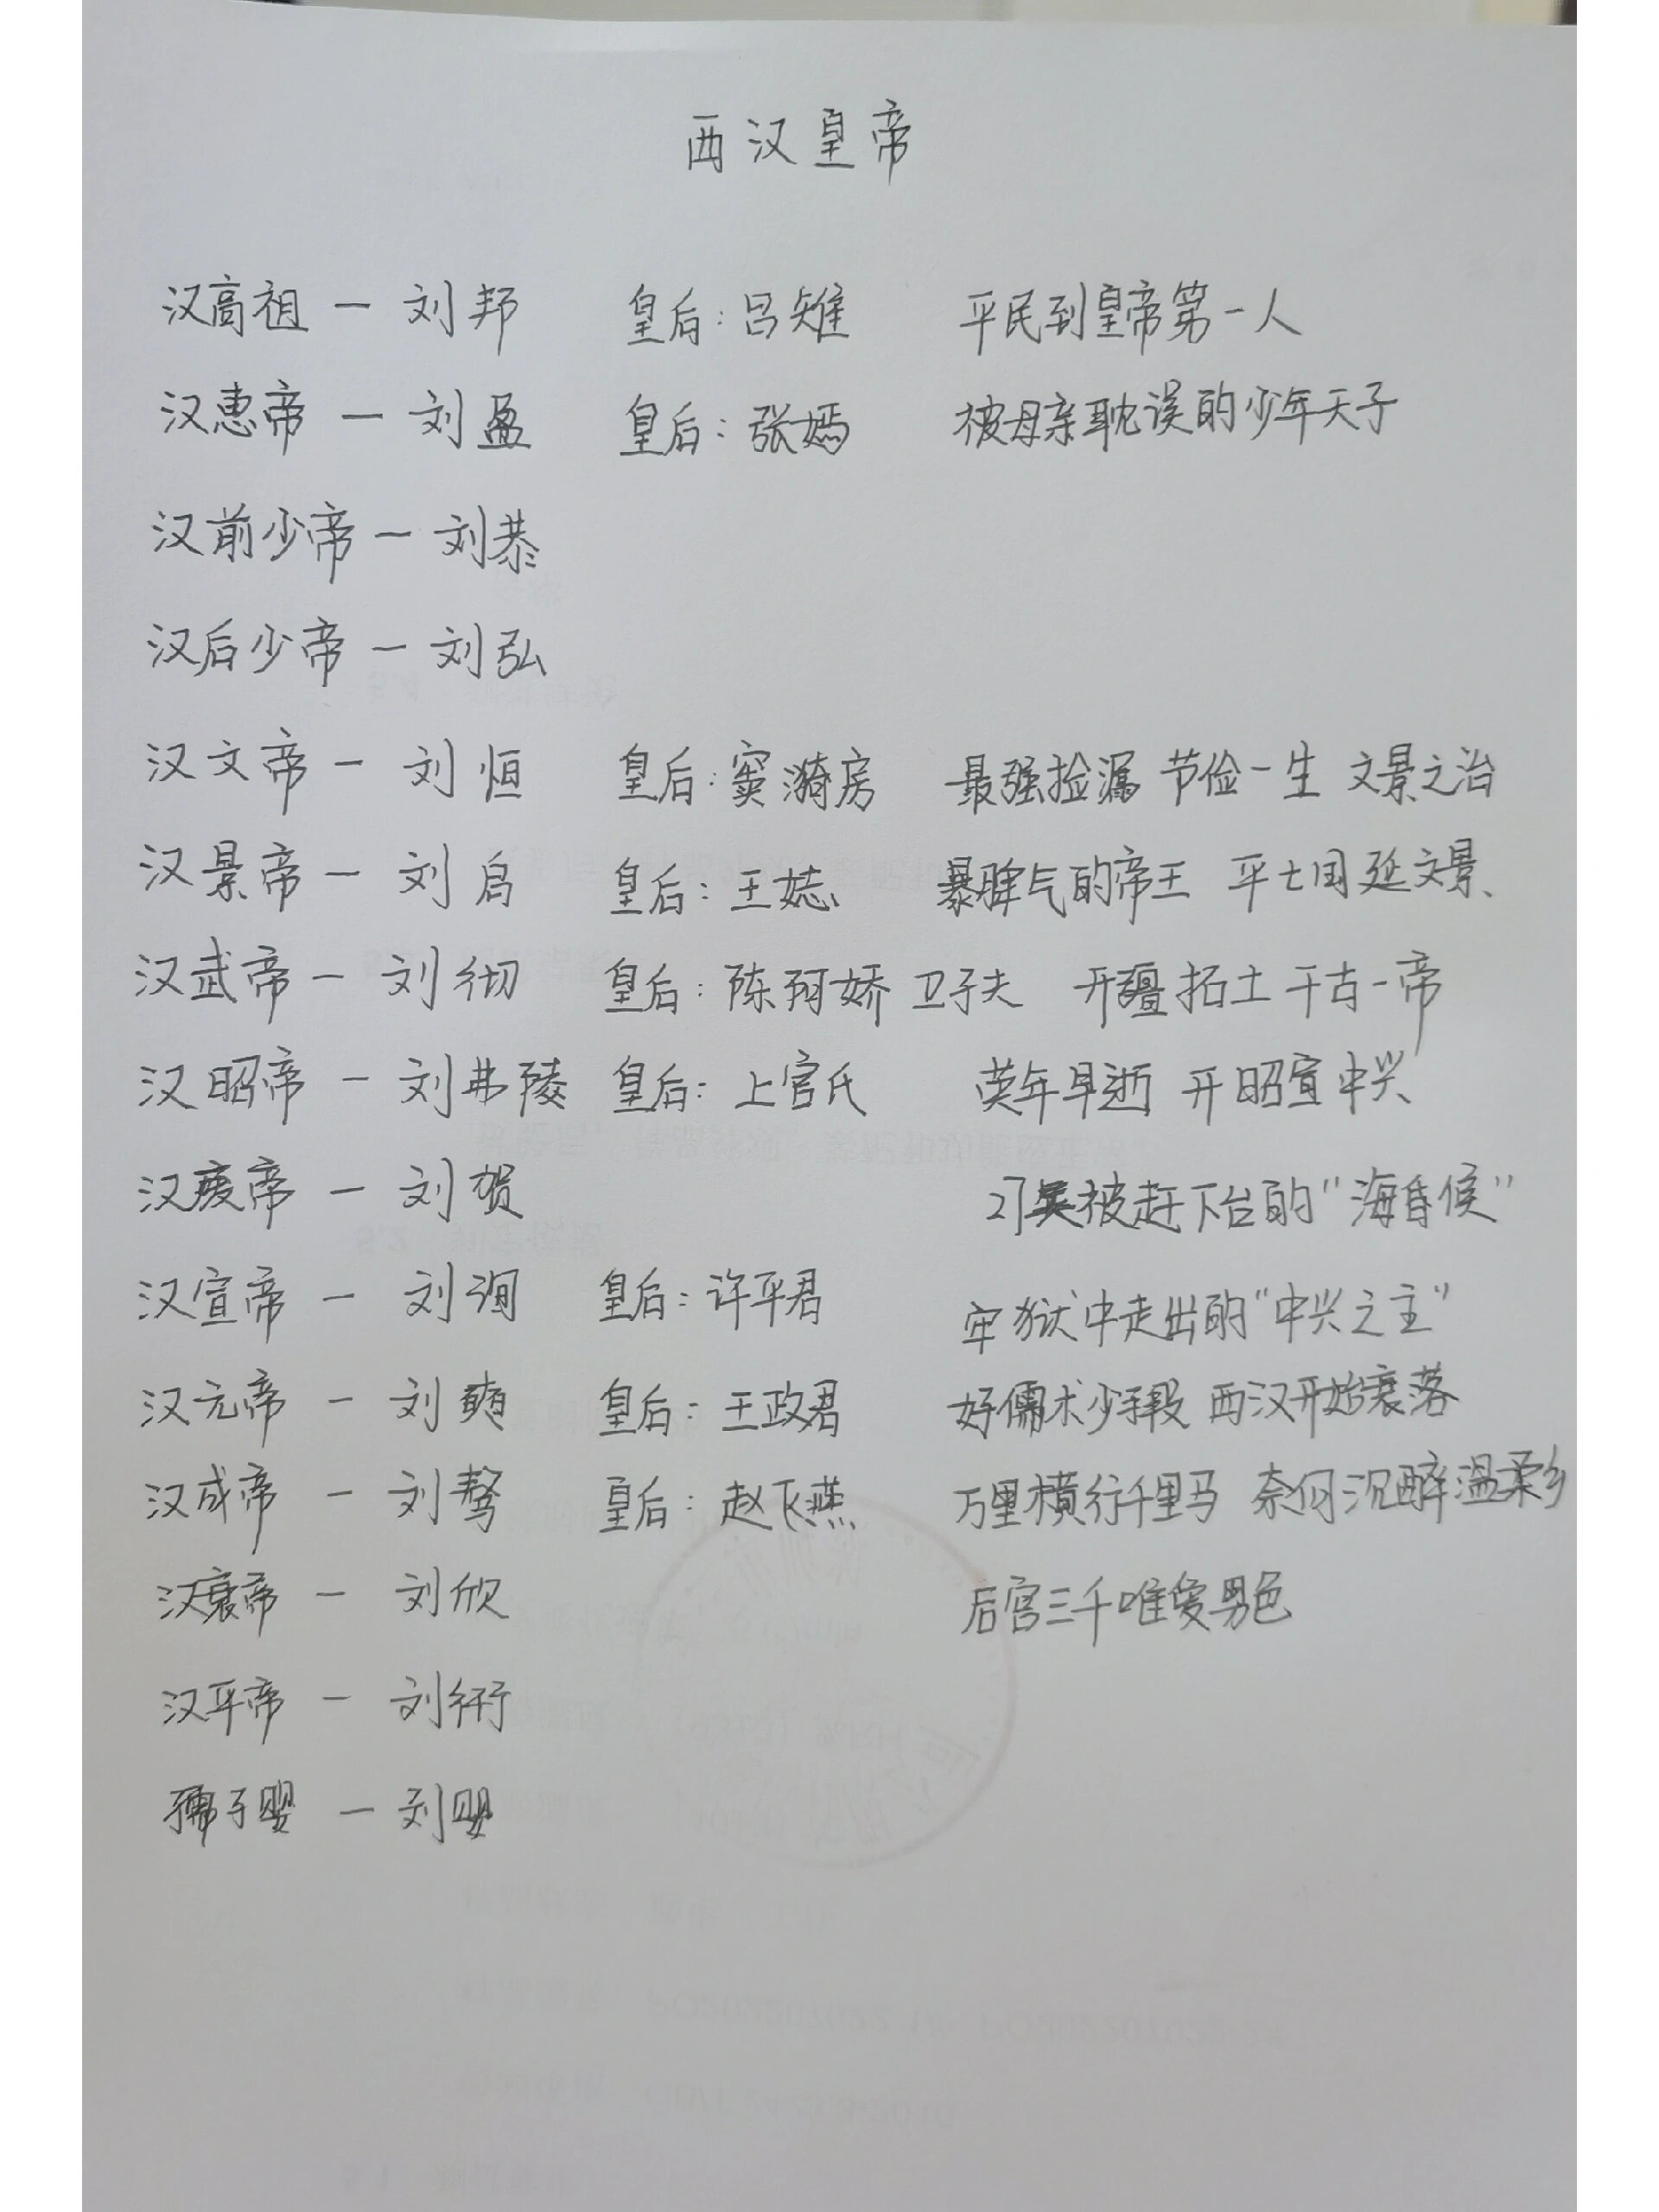 西汉皇帝
汉高祖 — 刘邦 皇后：吕雉 平民到皇帝第一人
汉惠帝 — 刘盈 皇后：张嫣 被母亲耽误的少年天子
汉前少帝 — 刘恭
汉后少帝 — 刘弘
汉文帝 — 刘恒 皇后：窦漪房 最强捡漏 节俭一生 文景之治
汉景帝 — 刘启 皇后：王娡 暴脾气的帝王 平七国延文景
汉武帝 — 刘彻 皇后：陈阿娇 卫子夫 开疆拓土 千古一帝
汉昭帝 — 刘弗陵 皇后：上官氏 英年早逝 开昭宣中兴
汉废帝 — 刘贺 被赶下台的“海昏候”
汉宣帝 — 刘询 皇后：许平君 牢狱中走出的“中兴之主”
汉元帝 — 刘奭 皇后：王政君 好儒术少手段 西汉开始衰落
汉成帝 — 刘骜 皇后：赵飞燕 万里横行千里马 奈何沉醉温柔乡
汉哀帝 — 刘欣 后宫三千唯爱男色
汉平帝 — 刘衎
孺子婴 — 刘婴